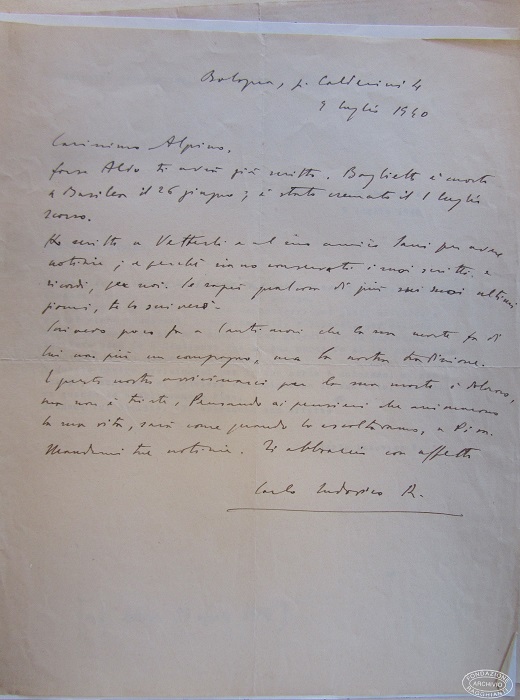 Bologna, p. Calderini 4
9 luglio 1940
Carissimo Alpino,
forse Aldo ti avrà già scritto. Baglietto è morto
a Basilea il 26 giugno; è stato cremato il 1 luglio
scorso.
Ho scritto a e al suo amico per avere
notizie; e perché siano conservati i suoi scritti e
ricordi, per noi. Se saprò qualcosa di più sui suoi ultimi
giorni, te lo scriverò.
Scrivevo poco fa a che la sua morte fa di
lui non più un compagno, ma la nostra tradizione.
E questo nostro avvicinarci per la sua morte è doloroso,
ma non è triste. Pensando ai pensieri che animarono
la sua vita, sarà come quando lo ascoltavamo, a Pisa.
Mandami tue notizie. Ti abbraccio con affetto
Carlo Ludovico R.
FONDAZIONE
ARCHIVIO
RAGGHIANTI